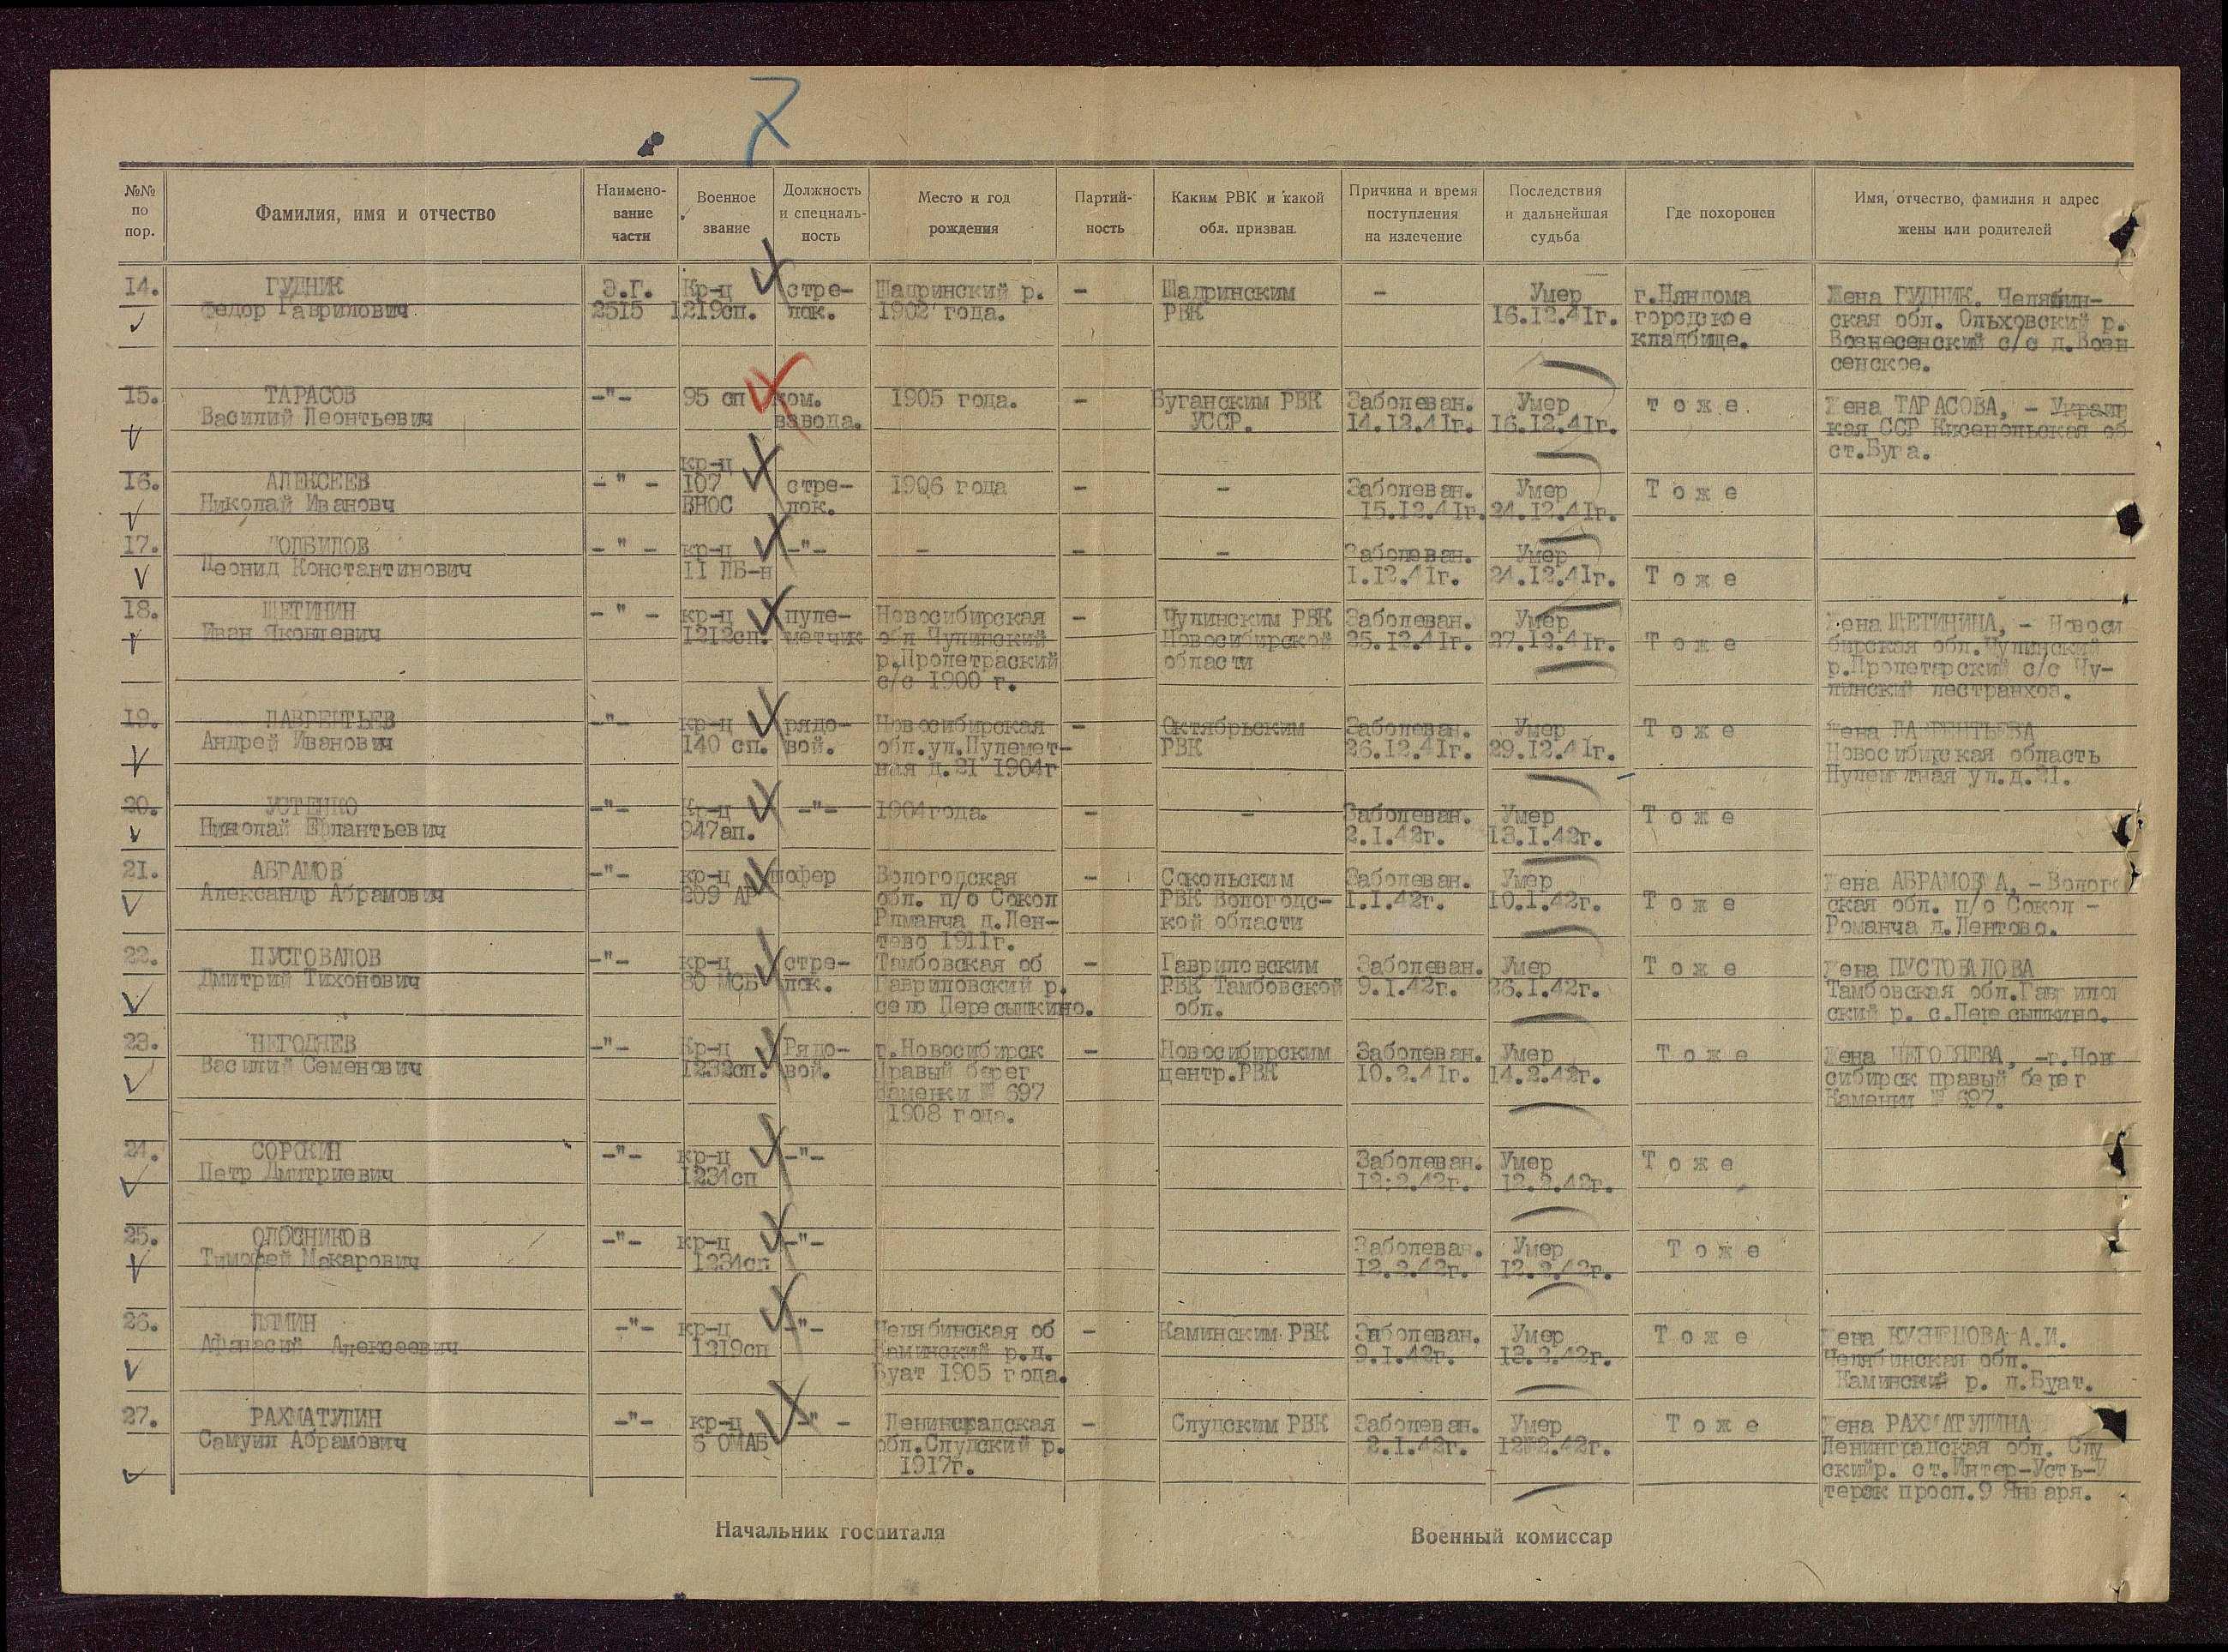 7
№№ по пор.
Фамилия, имя и отчество
Наимено- вание части
Военное звание
Должность и специаль- ность
Место и год рождения
Партий- ность
Каким РВК и какой обл. призван.
Причина и время поступления на излечение
Последствия и дальнейшая судьба
Где похоронен
Имя, отчество, фамилия и адрес жены или родителей
14. ГУДНИК Э.Г. Кр-ц стре- Шадринский р. - Шадринским - Умер г.Няндома Жена ГУДНИК. Челябин-
Федор Гаврилович 2515 1219сп. лок. 1902 года. РВК 16.12.41г. городское ская обл. Ольховский р.
кладбище. Вознесенский с/с д.Возн
сенское.
15. ТАРАСОВ -"- 95 сп ком. 1905 года. - Буганским РВК Заболеван. Умер т о ж е Жена ТАРАСОВА, - Украин
Василий Леонтьевич взвода. УССР. 14.12.41г. 16.12.41г. кая ССР Кисенольская об
ст.Буга.
кр-ц
16. АЛЕКСЕЕВ -"- 107 стре- 1906 года - - Заболеван. Умер Т о ж е
Николай Ивановч ВНОС лок. 15.12.41г. 24.12.41г.
17. ТОЛБИЛОВ -"- кр-ц -"- - - - Заболеван. Умер
Леонид Константинович 11 ЛБ-н 1.12.41г. 24.12.41г. Т о ж е
18. ЩЕТИНИН -"- кр-ц пуле- Новосибирская - Чулинским РВК Заболеван. Умер Жена ЩЕТИНИНА, - Новоси
Иван Яковлевич 1212сп. метчик обл Чулинский Новосибирской 25.12.41г. 27.12.41г. Т о ж е бирская обл.Чулинский
р.Пролетраский области р.Пролетарский с/с Чу-
с/с 1900 г. линский лестранхоз.
19. ЛАВРЕНТЬЕВ -"- кр-ц рядо- Новосибирская - Октябрьским Заболеван. Умер Т о ж е Жена ЛАВРЕНТЬЕВА
Андрей Иванович 140 сп. вой. обл.ул.Пулемет- РВК 26.12.41г. 29.12.41г. Новосибирская область
ная д.21 1904г Пулеметная ул.д.21.
20. УСТЕНКО -"- Кр-ц -"- 1904года. - - Заболеван. Умер Т о ж е
Николай Ефлантьевич 947ап. 2.1.42г. 13.1.42г.
21. АБРАМОВ -"- кр-ц шофер Вологодская - Сокольским Заболеван. Умер Жена АБРАМОВА, - Волого
Александр Абрамович 209 АР обл. п/о Сокол РВК Вологодс- 1.1.42г. 10.1.42г. Т о ж е ская обл. п/о Сокол -
Риманча д.Лен- кой области Романча д.Лентово.
тево 1911г.
22. ПУСТОВАЛОВ -"- кр-ц стре- Тамбовская об - Гавриловским Заболеван. Умер Т о ж е Жена ПУСТОВАЛОВА
Дмитрий Тихонович 80 МСБ лок. Гавриловский р. РВК Тамбовской 9.1.42г. 26.1.42г. Тамбовская обл.Гаврилов
село Пересышкино. обл. ский р. с.Пересышкино.
23. НЕГОДЯЕВ -"- Кр-ц Рядо- г.Новосибирск - Новосибирским Заболеван. Умер Т о ж е Жена НЕГОДЯЕВА, -г.Нов
Василий Семенович 1232сп. вой. Правый берег центр.РВК 10.2.41г. 14.2.42г. сибирск правый берег
Каменки № 697 Каменки № 697.
1908 года.
24. СОРОКИН -"- кр-ц -"- Заболеван. Умер Т о ж е
Петр Дмитриевич 1234сп 12.2.42г. 12.2.42г.
25. ОЛОСНИКОВ -"- кр-ц -"- Заболеван. Умер Т о ж е
Тимофей Макарович 1234сп 12.2.42г. 12.2.42г.
26. ЛЯМИН -"- кр-ц -"- Челябинская об - Каминским РВК Заболеван. Умер Т о ж е Жена КУЗНЕЦОВА А.И.
Афанасий Алексеевич 1219сп Каминский р.д. 9.1.42г. 13.2.42г. Челябинская обл.
Буат 1905 года. Каминский р. д.Буат.
27. РАХМАТУЛИН -"- кр-ц -"- Ленинградская - Слудским РВК Заболеван. Умер Т о ж е Жена РАХМАТУЛИНА
Самуил Абрамович 6 ОМАБ обл.Слудский р. 2.1.42г. 12.2.42г. Ленинградская обл. Слу
1917г. скийр. ст.Интер-Усть-
терок просп.9 Января.
Начальник госпиталя
Военный комиссар